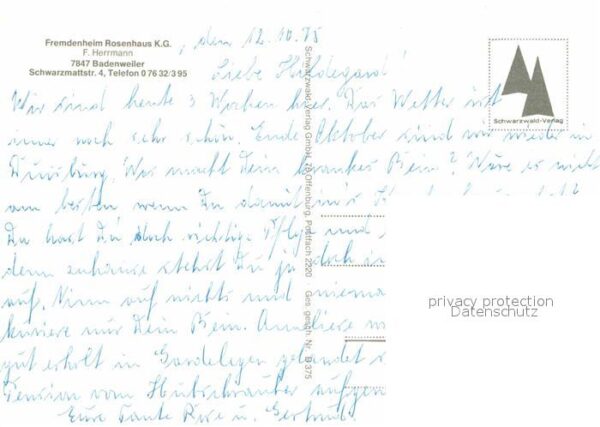 Fremdenheim Rosenhaus K.G.
F. Herrmann
7847 Badenweiler
Schwarzmattstr. 4, Telefon 0 76 32/3 95
, den 12.10.75
Liebe Hildegard!
Wir sind heute 3 Wochen hier. Das Wetter ist
immer noch sehr schön. Ende Oktober sind wir wieder in
Duisburg. Was macht Dein krankes Bein? Wäre es nicht
am besten wenn Du damit in's
Du hast Du doch richtige Pflege und
denn zuhause stehst Du ja doch
auf. Nimm auf nichts und niema
kuriere nur Dein Bein. Anneliese
gut erholt in Gardelegen gelandet
Pension vom Hubschrauber aufgen
Eure Tante Rose u. Gertrud.
Schwarzwald-Verlag GmbH, 76 Offenburg, Postfach 2220
Ges. gesch. Nr. B 375
Schwarzwald-Verlag
privacy protection
Datenschutz